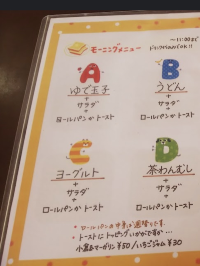 〜11:00まで
モーニングメニュー
A
ゆで玉子
+
サラダ
+
ロールパンかトースト
B
うどん
+
サラダ
+
ロールパンかトースト
C
ヨーグルト
+
サラダ
+
ロールパンかトースト
D
茶わんむし
+
サラダ
+
ロールパンかトースト
* トーストにトッピングいかがですか…
小倉&マーガリン¥50/いちごジャム¥30